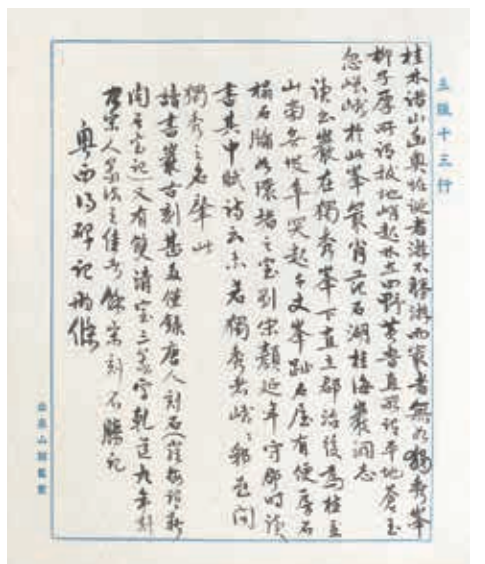 玉版十三行
桂林諸山函奧詼詭者游不勝游而最者無如獨秀峯
柳子厚所謂拔地峭起林立四野黃魯直所謂平地蒼玉
忽嵯峨於此峯最肖范石湖桂海巖洞志
讀書巖在獨秀峯下直立郡治後爲桂主
山南旁坡阜突起千丈峯趾石屋有便房石
榻石牖如環堵之室劉宋顏延年守郡時讀
書其中賦詩云未若獨秀者峨〻郛邑間
獨秀之名肇此
讀書巖古刻甚多僅錄唐人刻石(新
開石室記)又有雙清室三篆字乾道九年刻
宋人篆法之佳者餘宋刻不勝記
粵西得碑記兩條
山館監製